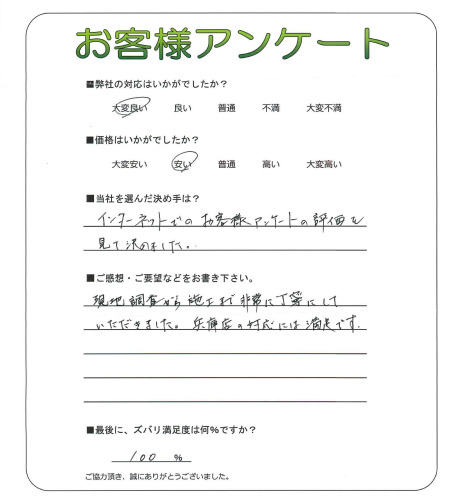 お客様アンケート
■弊社の対応はいかがでしたか？
大変良い 良い 普通 不満 大変不満
■価格はいかがでしたか？
大変安い 安い 普通 高い 大変高い
■当社を選んだ決め手は？
インターネットでのお客様アンケートの評価を
見て決めました。
■ご感想・ご要望などをお書き下さい。
現地調査から施工まで非常に丁寧にして
いただきました。兵庫店の対応には満足です.
■最後に、ズバリ満足度は何%ですか？
100 %
ご協力頂き、誠にありがとうございました。